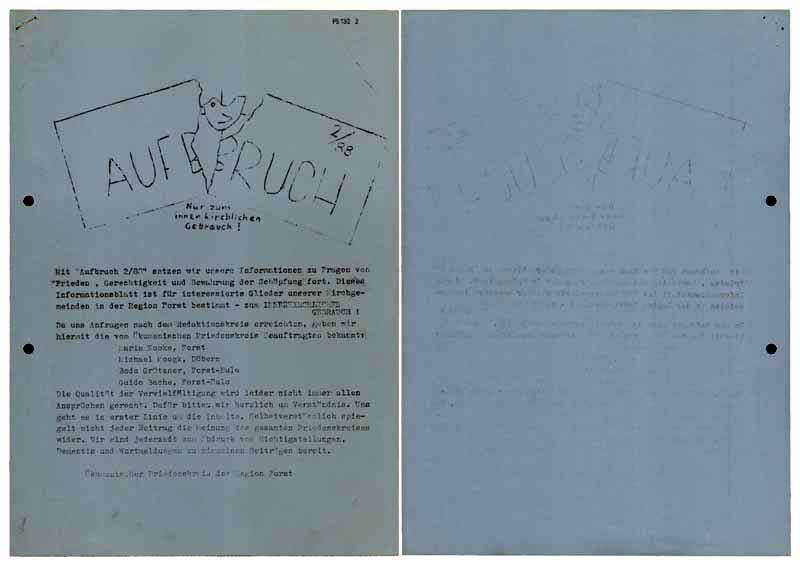 PS 132 2
AUFBRUCH
2/88
Nur zum
innerkirchlichen
Gebrauch !
Mit "Aufbruch 2/88" setzen wir unsere Informationen zu Fragen von
"Frieden , Gerechtigkeit und Bewahrung der Schöpfung" fort. Dieses
Informationsblatt ist für interessierte Glieder unserer Kirchge-
meinden in der Region Forst bestimmt - zum INNERKIRCHLICHEN
GEBRAUCH !
Da uns Anfragen nach dem Redaktionskreis erreichten, geben wir
hiermit die vom Ökumenischen Friedenskreis Beauftragten bekannt:
Maria Nooke, Forst
Michael Moogk, Döbern
Bodo Grützner, Forst-Eulo
Guido Bache, Forst-Eulo
Die Qualität der Vervielfältigung wird leider nicht immer allen
Ansprüchen gerecht. Dafür bitten wir herzlich um Verständnis. Uns
geht es in erster Linie um die Inhalte. Selbstverständlich spie-
gelt nicht jeder Beitrag die Meinung des gesamten Friedenskreises
wider. Wir sind jederzeit zum Abdruck von Richtigstellungen,
Dementis und Wortmeldungen zu einzelnen Beiträgen bereit.
Ökumenischer Friedenskreis der Region Forst